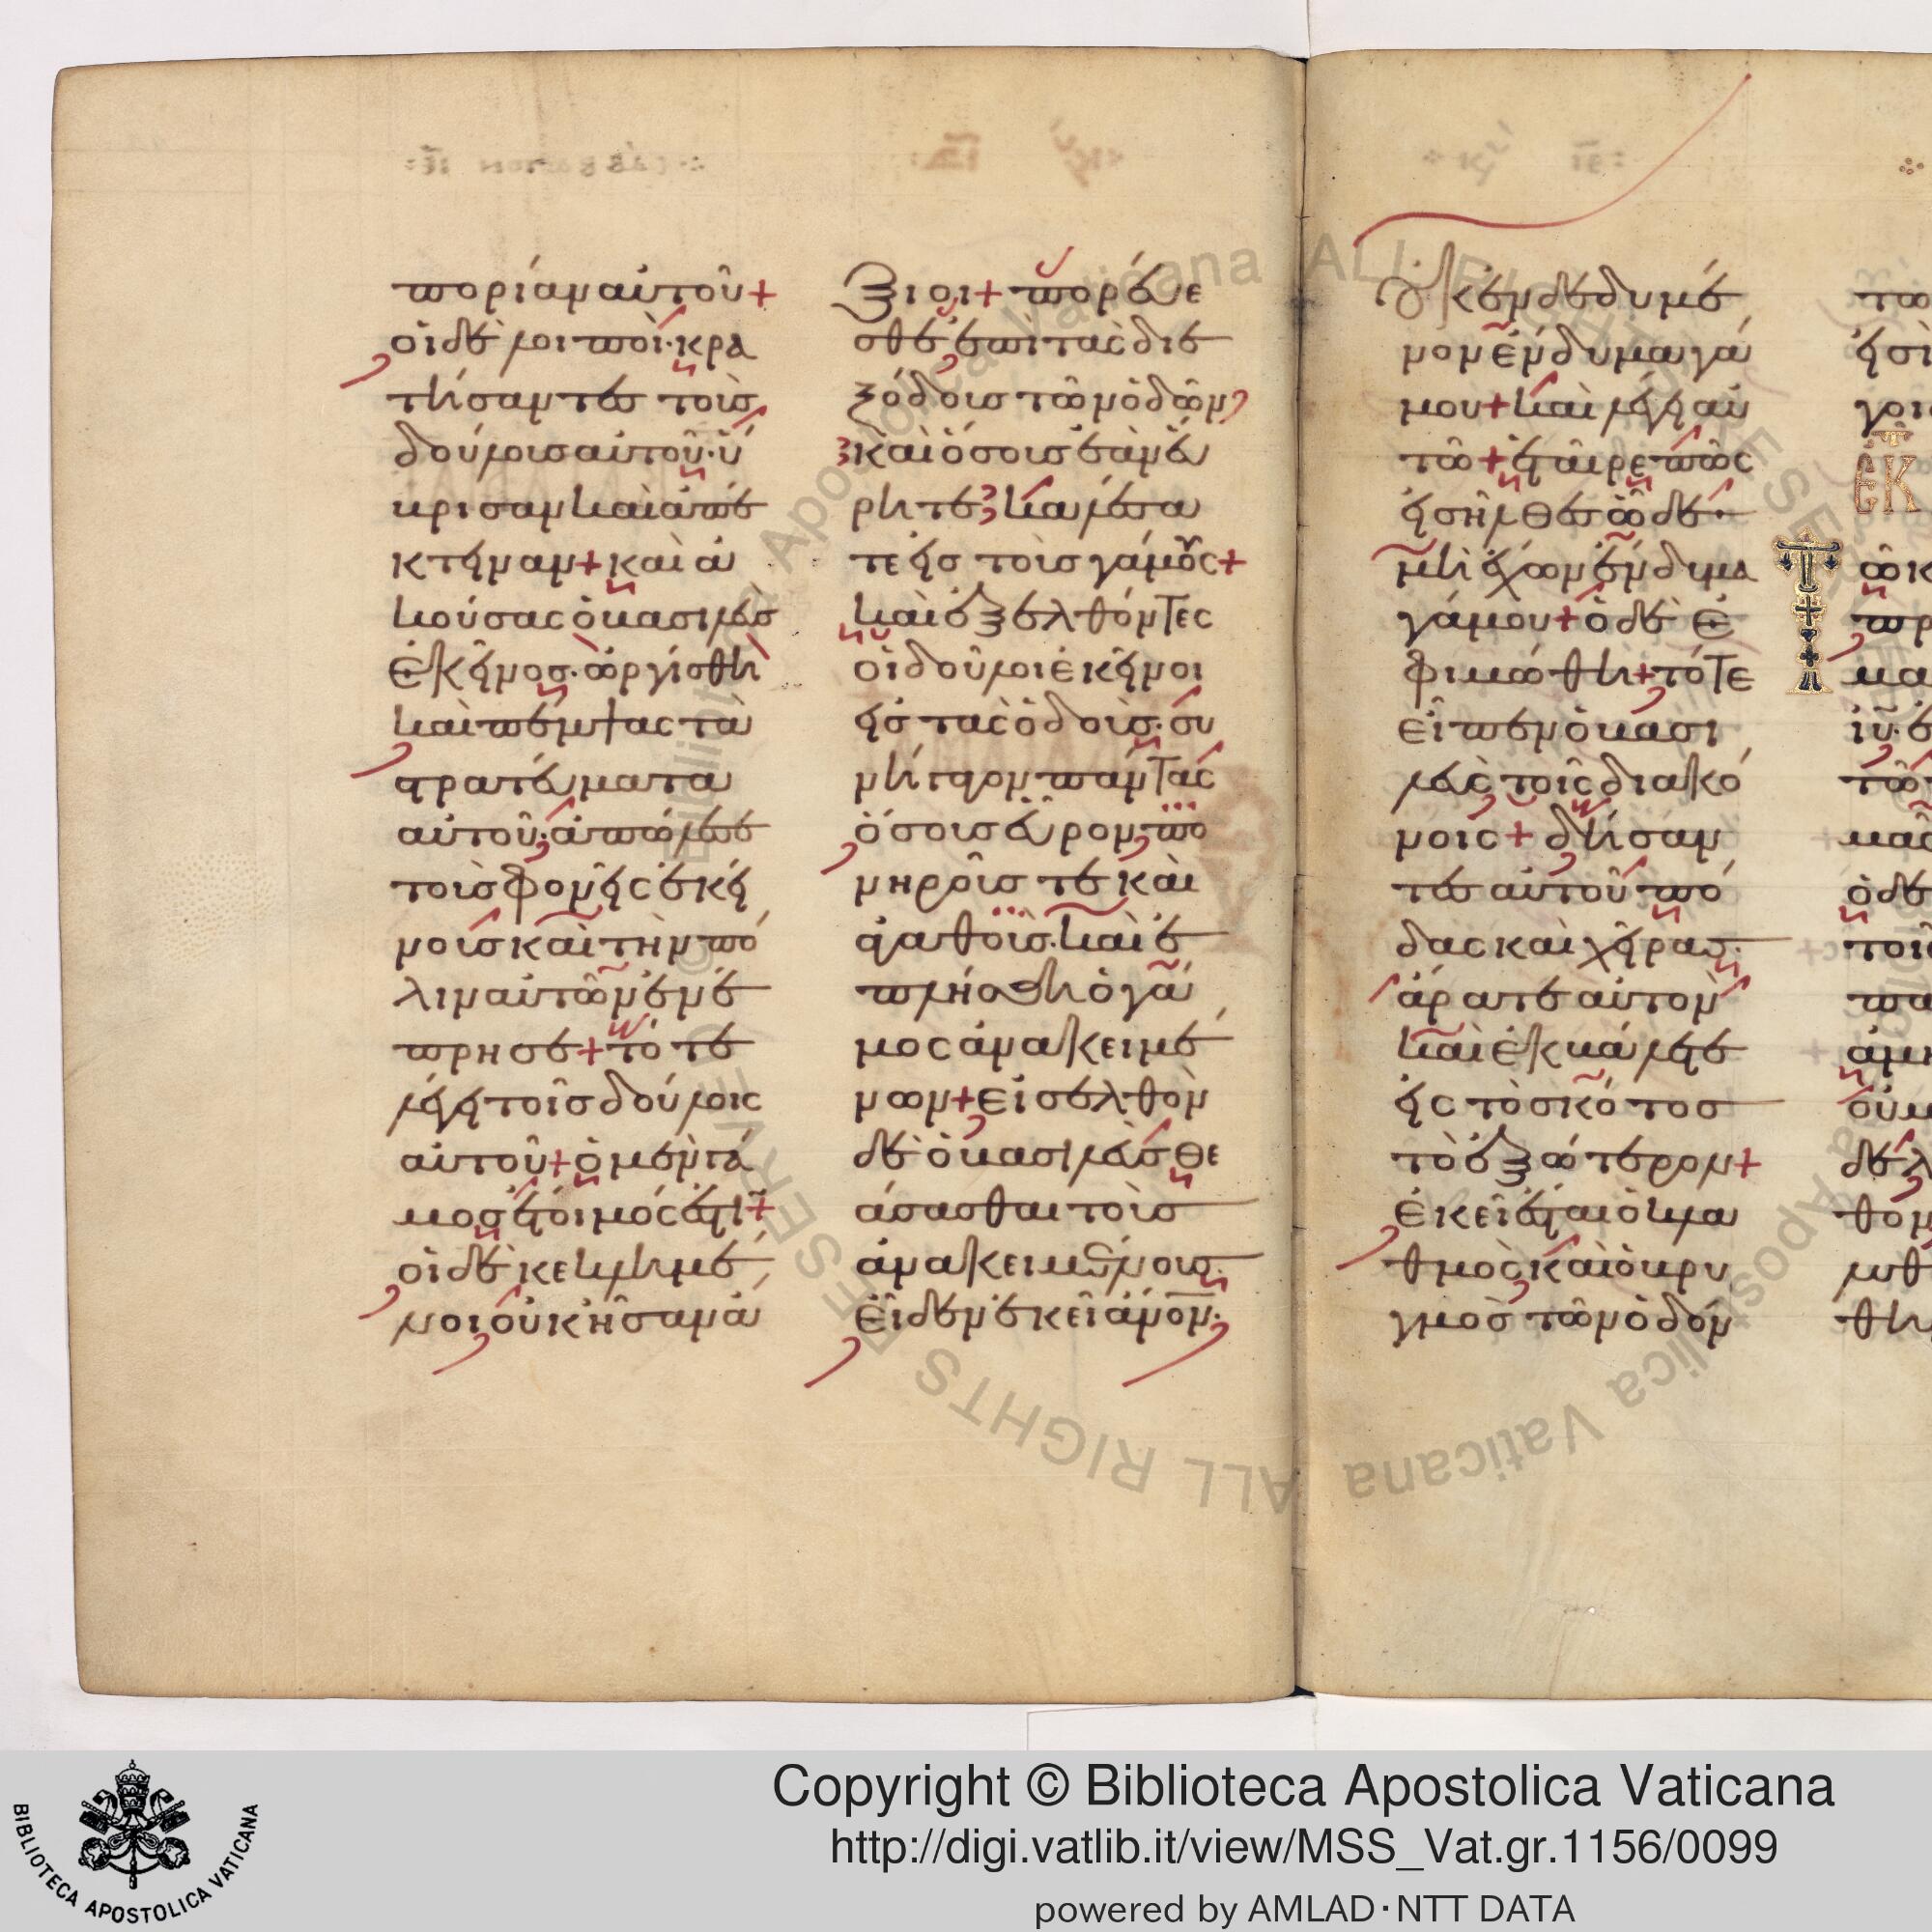 πορίαν αὐτοῦ+
οἱ δὲ λοιποὶ· κρα
τήσαντες τοὺς
δούλους αὐτοῦ· ὕ
βρισαν καὶ ἀπέ
κτειναν+ καὶ ἀ
κούσας ὁ βασιλεὺς
ἐκεῖνος· ὠργίσθη
καὶ πέμψας τὰ
στρατεύματα
αὐτοῦ· ἀπώλεσε
τοὺς φονεῖς ἐκεί
νους καὶ τὴν πό
λιν αὐτῶν ἐνέ
πρησε+ τότε
λέγει τοῖς δούλοις
αὐτοῦ+ ὁ μὲν γά
μος ἕτοιμός ἐστι+
οἱ δὲ κεκλημέ
νοι οὐκ ἦσαν ἄ
ξιοι+ πορεύε
σθε ἐπὶ τὰς διε
ξόδους τῶν ὁδῶν
καὶ ὅσους ἐὰν εὕ
ρητε καλέσα
τε εἰς τοὺς γάμους+
καὶ ἐξελθόντες
οἱ δοῦλοι ἐκεῖνοι
εἰς τὰς ὁδοὺς· συ
νήγαγον πάντας
ὅσους εὗρον· πο
νηρούς τε καὶ
ἀγαθούς· καὶ ἐ
πλήσθη ὁ γά
μος ἀνακειμέ
νων+ εἰσελθὼν
δὲ ὁ βασιλεὺς θε
άσασθαι τοὺς
ἀνακειμένους·
εἶδεν ἐκεῖ ἄνον·
οὐκ ἐνδεδυμέ
νον ἔνδυμα γά
μου+ καὶ λέγει αὐ
τῶ+ ἑταῖρε πῶς
εἰσῆλθες ὧδε·
μὴ ἔχων ἔνδυμα
γάμου+ ὁ δὲ ἐ
φιμώθη+ τότε
εἶπεν ὁ βασι
λεὺς τοῖς διακό
νοις+ δήσαν
τες αὐτοῦ πό
δας καὶ χεῖρας·
ἄρατε αὐτὸν
καὶ ἐκβάλετε
εἰς τὸ σκότος
τὸ ἐξώτερον+
ἐκεῖ ἔσται ὁ κλαυ
θμὸς καὶ ὁ βρυ
γμὸς τῶν ὀδόν
Copyright © Biblioteca Apostolica Vaticana
http://digi.vatlib.it/view/MSS_Vat.gr.1156/0099
powered by AMLAD·NTT DATA
BIBLIOTECA APOSTOLICA VATICANA